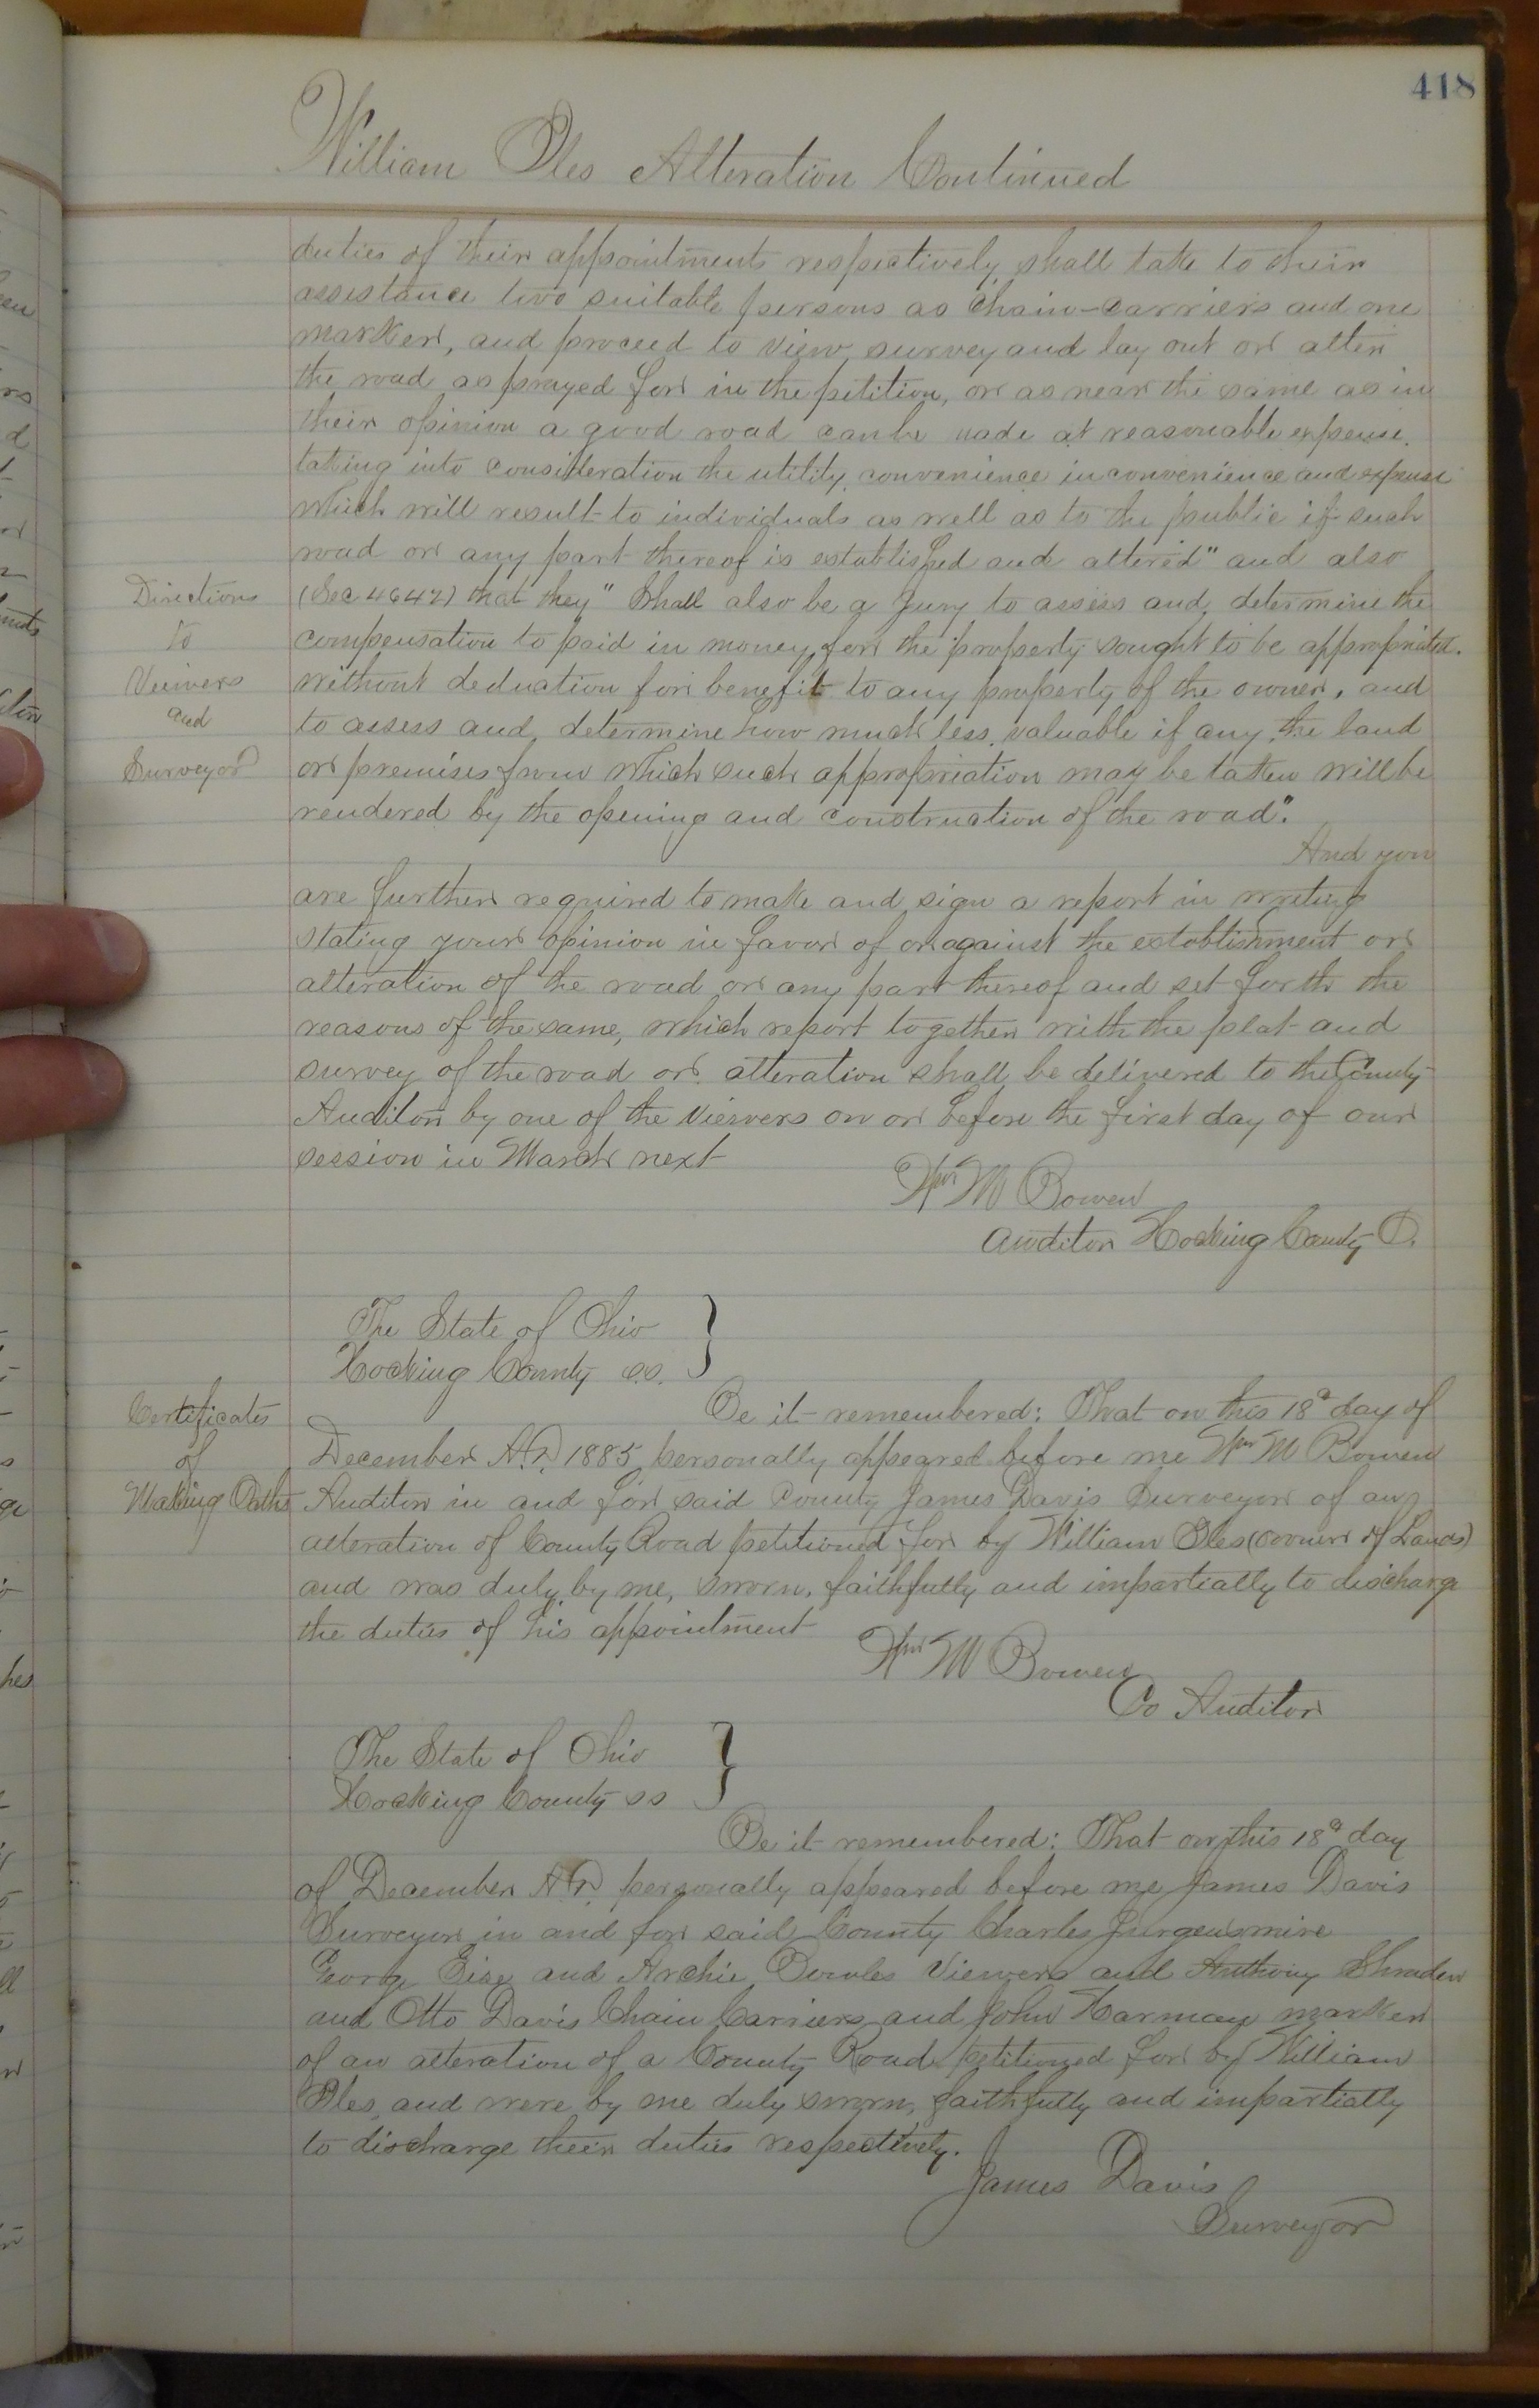 418
William Oles Alteration Continued
duties of their appointments respectively, shall take to their
assistance two suitable persons as Chain-Carriers and one
marker, and proceed to view survey and lay out or alter
the road as prayed for in the petition, or as near the same as in
their opinion a good road can be made at reasonable expense.
taking into consideration the utility, convenience inconvenience and expense
which will result to individuals as well as to the public if such
road or any part thereof is established and altered" and also
Directions
to
Veiwers
and
Surveyor
(Sec 4642) that they" Shall also be a Jury to assess and determine the
compensation to paid in money for the property sought to be appropriated.
without deduction for benefit to any property of the owner, and
to assess and determine how much less valuable if any the land
or premises from which such appropriation may be taken will be
rendered by the opening and construction of the road".
And you
are further required to make and sign a report in writing
stating your opinion in favor of or against the establishment or
alteration of the road or any part thereof and set forth the
reasons of the same, which report together with the plat and
survey of the road or alteration shall be delivered to the County
Auditor by one of the Viewers on or before the first day of our
session in March next
Wm M Bowen
Auditor Hocking County O.
The State of Ohio }
Hocking County s.s.
Certificates
of
Making Oaths
Be it remembered: That on this 18" day of
December A.D. 1885 personally appeared before me Wm M Bowen
Auditor in and for said County James Davis Surveyor of an
alteration of County Road petitioned for by William Oles (owner of Lands)
and was duly by me, sworn, faithfully and impartially to discharge
the duties of his appointment
Wm M Bowen
Co Auditor
The State of Ohio }
Hocking County ss
Be it remembered: That on this 18" day
of December A.D. personally appeared before me James Davis
Surveyor in and for said County Charles
George and Archie Bowles Viewers and Anthony Shrader
and Otto Davis Chain Carriers and John Harmon marker
of an alteration of a County Road petitioned for by William
Oles, and were by me duly sworn, faithfully and impartially
to discharge their duties respectively.
James Davis
Surveyor